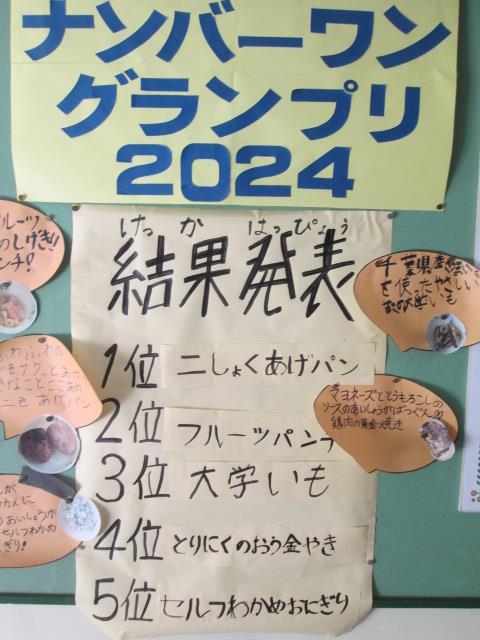 ナンバーワン
グランプリ
2024
けっか はっぴょう
結果発表
1位 二しょくあげパン
2位 フルーツパン
3位 大学いも
4位 とりにくのおう金やき
5位 セルフわかめおにぎり
ルーツ
のしげき!!
ンチ!
ふわふわの
をサクッとあ
きなことココアの
二色あげパン
が
カメに
のあいしょうが
セルフわかめ
ぎり!
千葉県産
を使ったやさしい
大学いも
マヨネーズととうもろこしの
ソースのあいしょうがばつぐん
鶏肉の黄金焼き